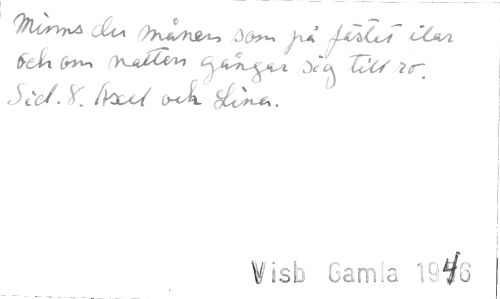 Minns du månen som på fästet ilar
och om natten gångar sig till ro.
Sid. 8. Axel och Lina.
Visb Gamla 1946